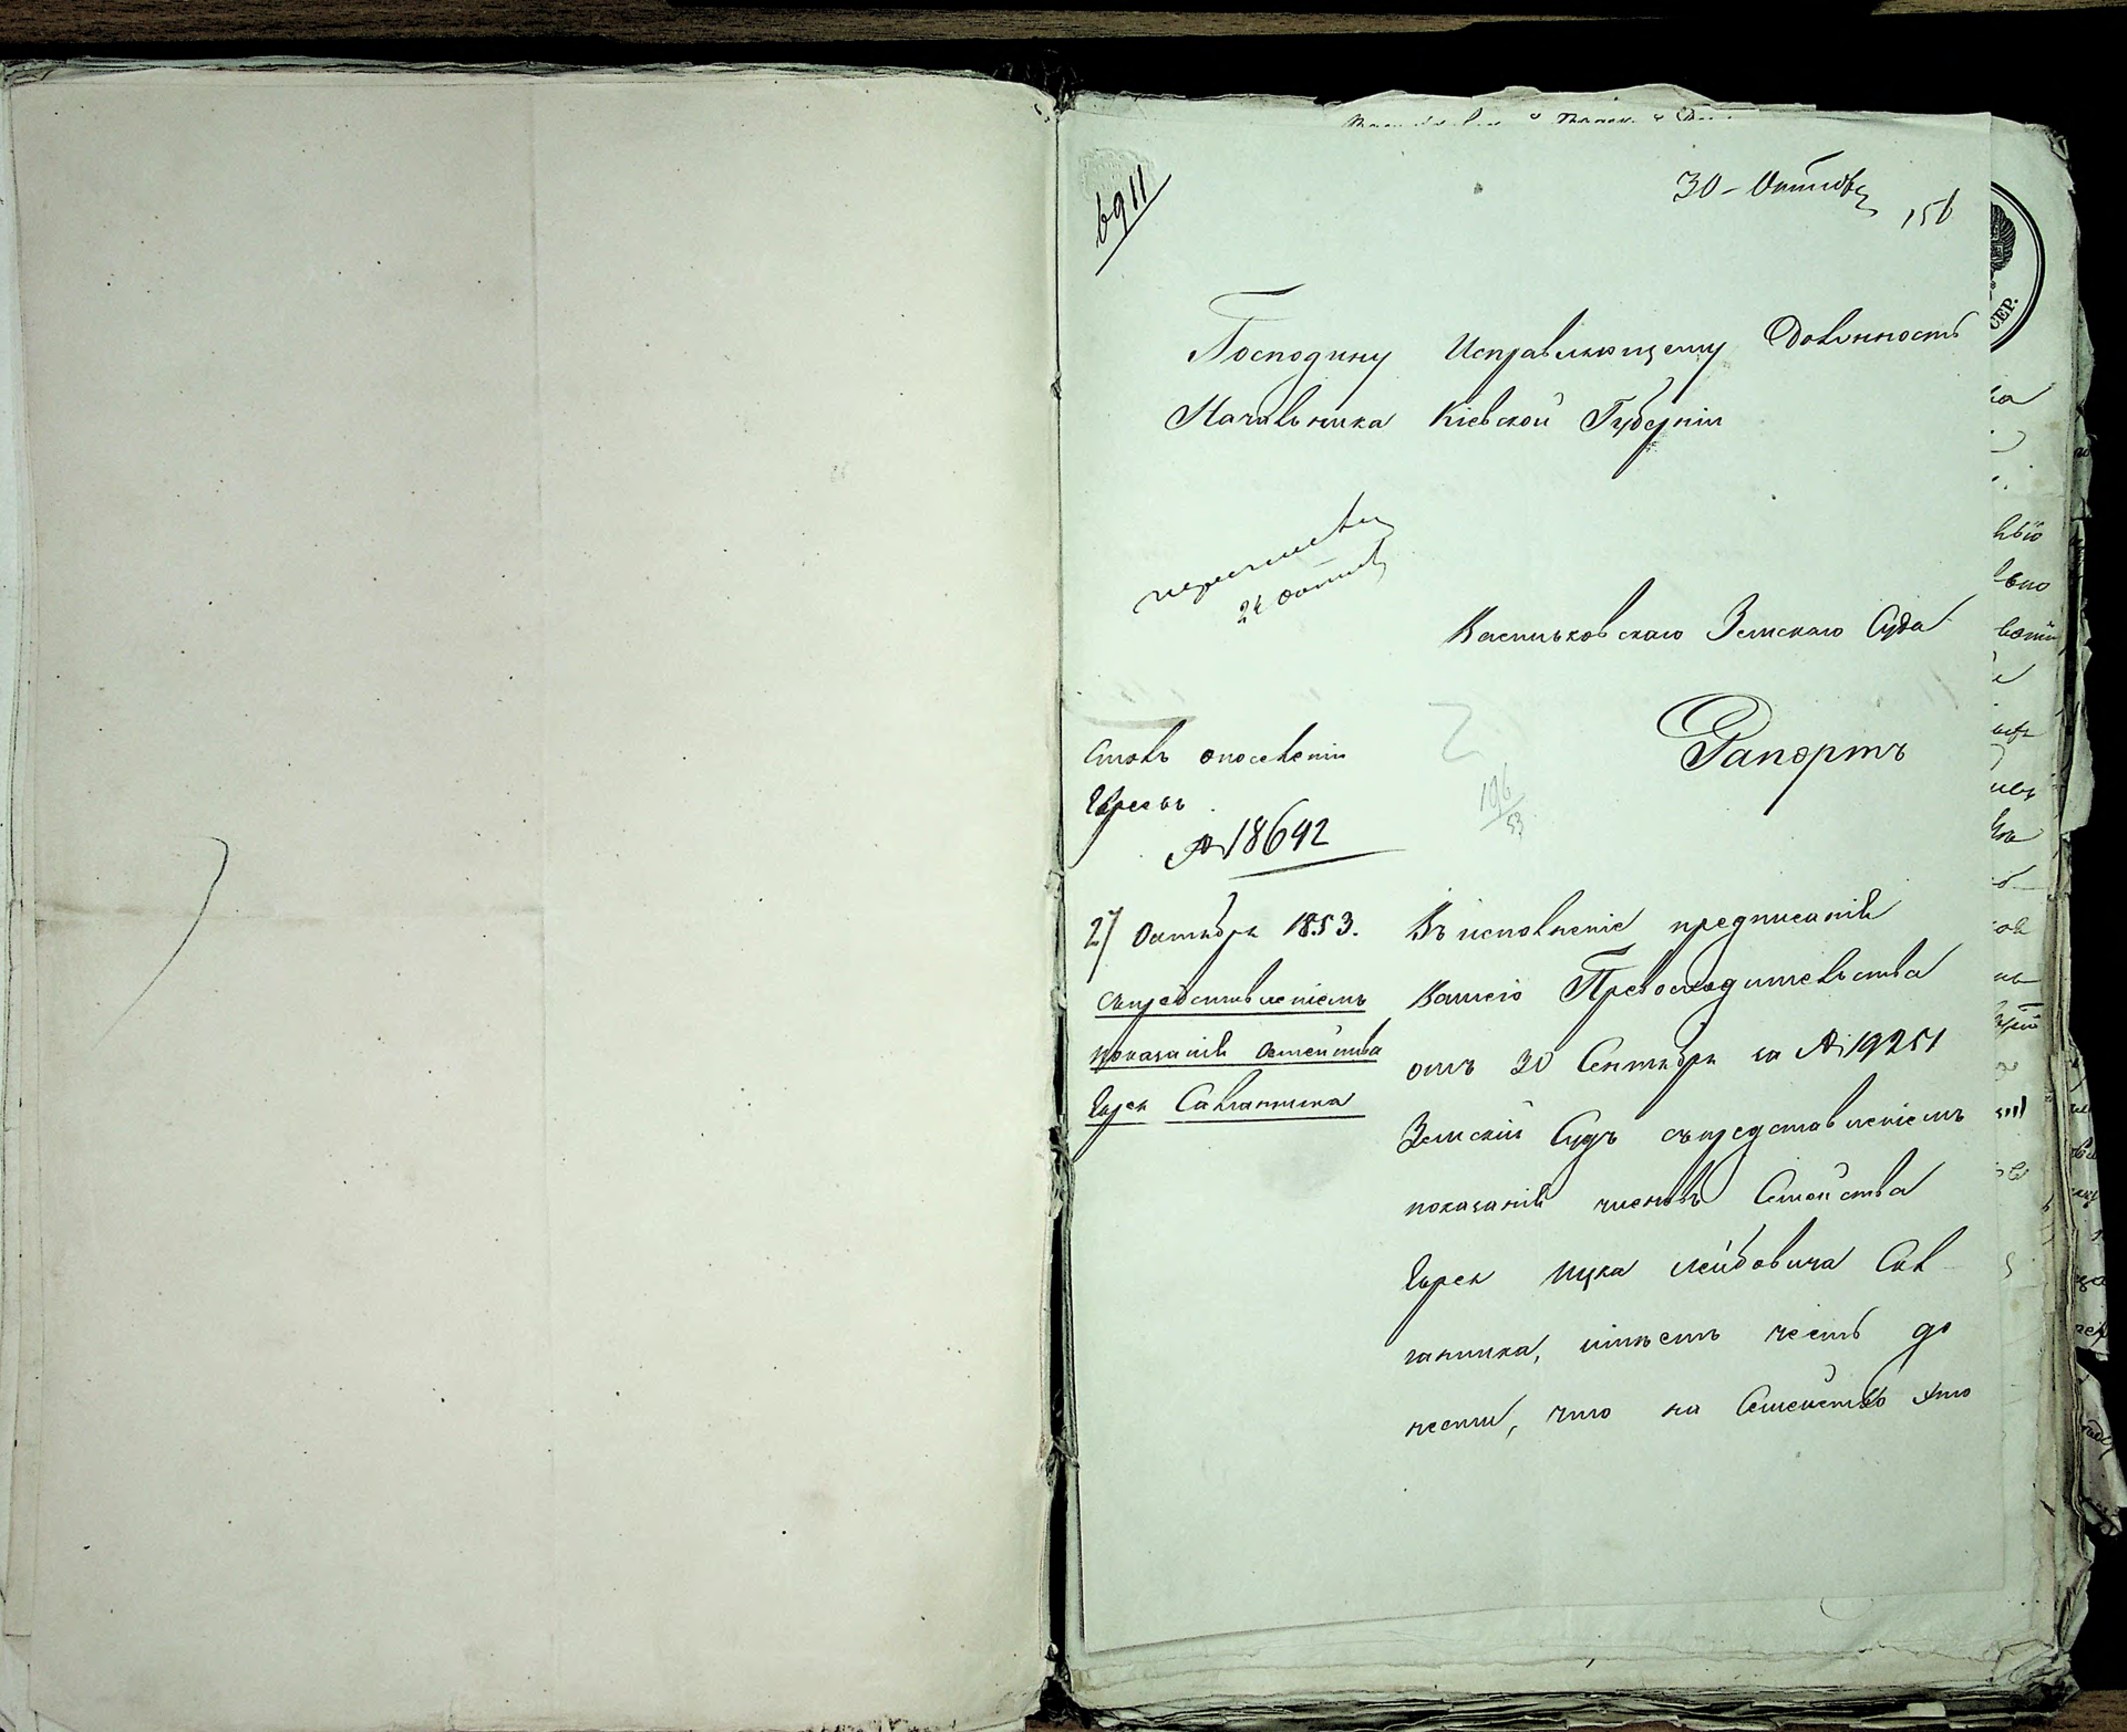 6911
30 Октября
156
Господину Исправляющему Должность
Начальника Кіевской Губерніи
24 Октяб
Васильковскаго Земскаго Суда
Рапортъ
Столъ о поселеніи
Евреевъ
№ 18642
196
53
27 Октября 1853.
съ представленіемъ
показаній Семейства
Еврея Савганчика
Въ исполненіе предписанія
Вашего Превосходительства
отъ 30 Сентября за № 19251
Земскій Судъ съ представленіемъ
показаній членовъ Семейства
Еврея Ицка Лейбовича Сав
ганчика, имѣетъ честь до
нести, что на Семейство это
СЕР.